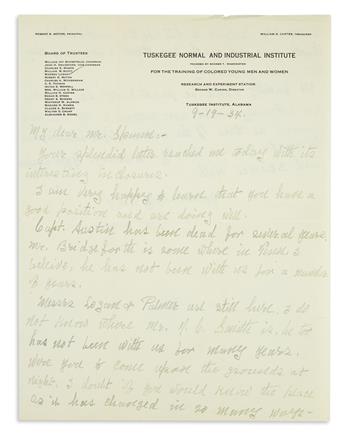 ROBERT R. MOTON, PRINCIPAL
WILLIAM H. CARTER, TREASURER
BOARD OF TRUSTEES
TUSKEGEE NORMAL AND INDUSTRIAL INSTITUTE
FOUNDED BY BOOKER T. WASHINGTON
FOR THE TRAINING OF COLORED YOUNG MEN AND WOMEN
RESEARCH AND EXPERIMENT STATION
GEORGE W. CARVER, DIRECTOR
TUSKEGEE INSTITUTE, ALABAMA
9-19-34.
My dear Mr.
Your splendid letter reached me today with its
interesting inclosures.
I am very happy to learn that you have a
good position and are doing well.
Capt. Austin has been dead for several years,
Mr. Bridgeforth is some where in Tenn I
believe, he has not been with us for a number
of years.
Messrs Logan & Palmer are still here, I do
not know where Mr. N. C. Smith is, he too
has not been with us for many years.
Were you to come upon the grounds at
night, I doubt if you would know the place
as it has changed in so many ways-